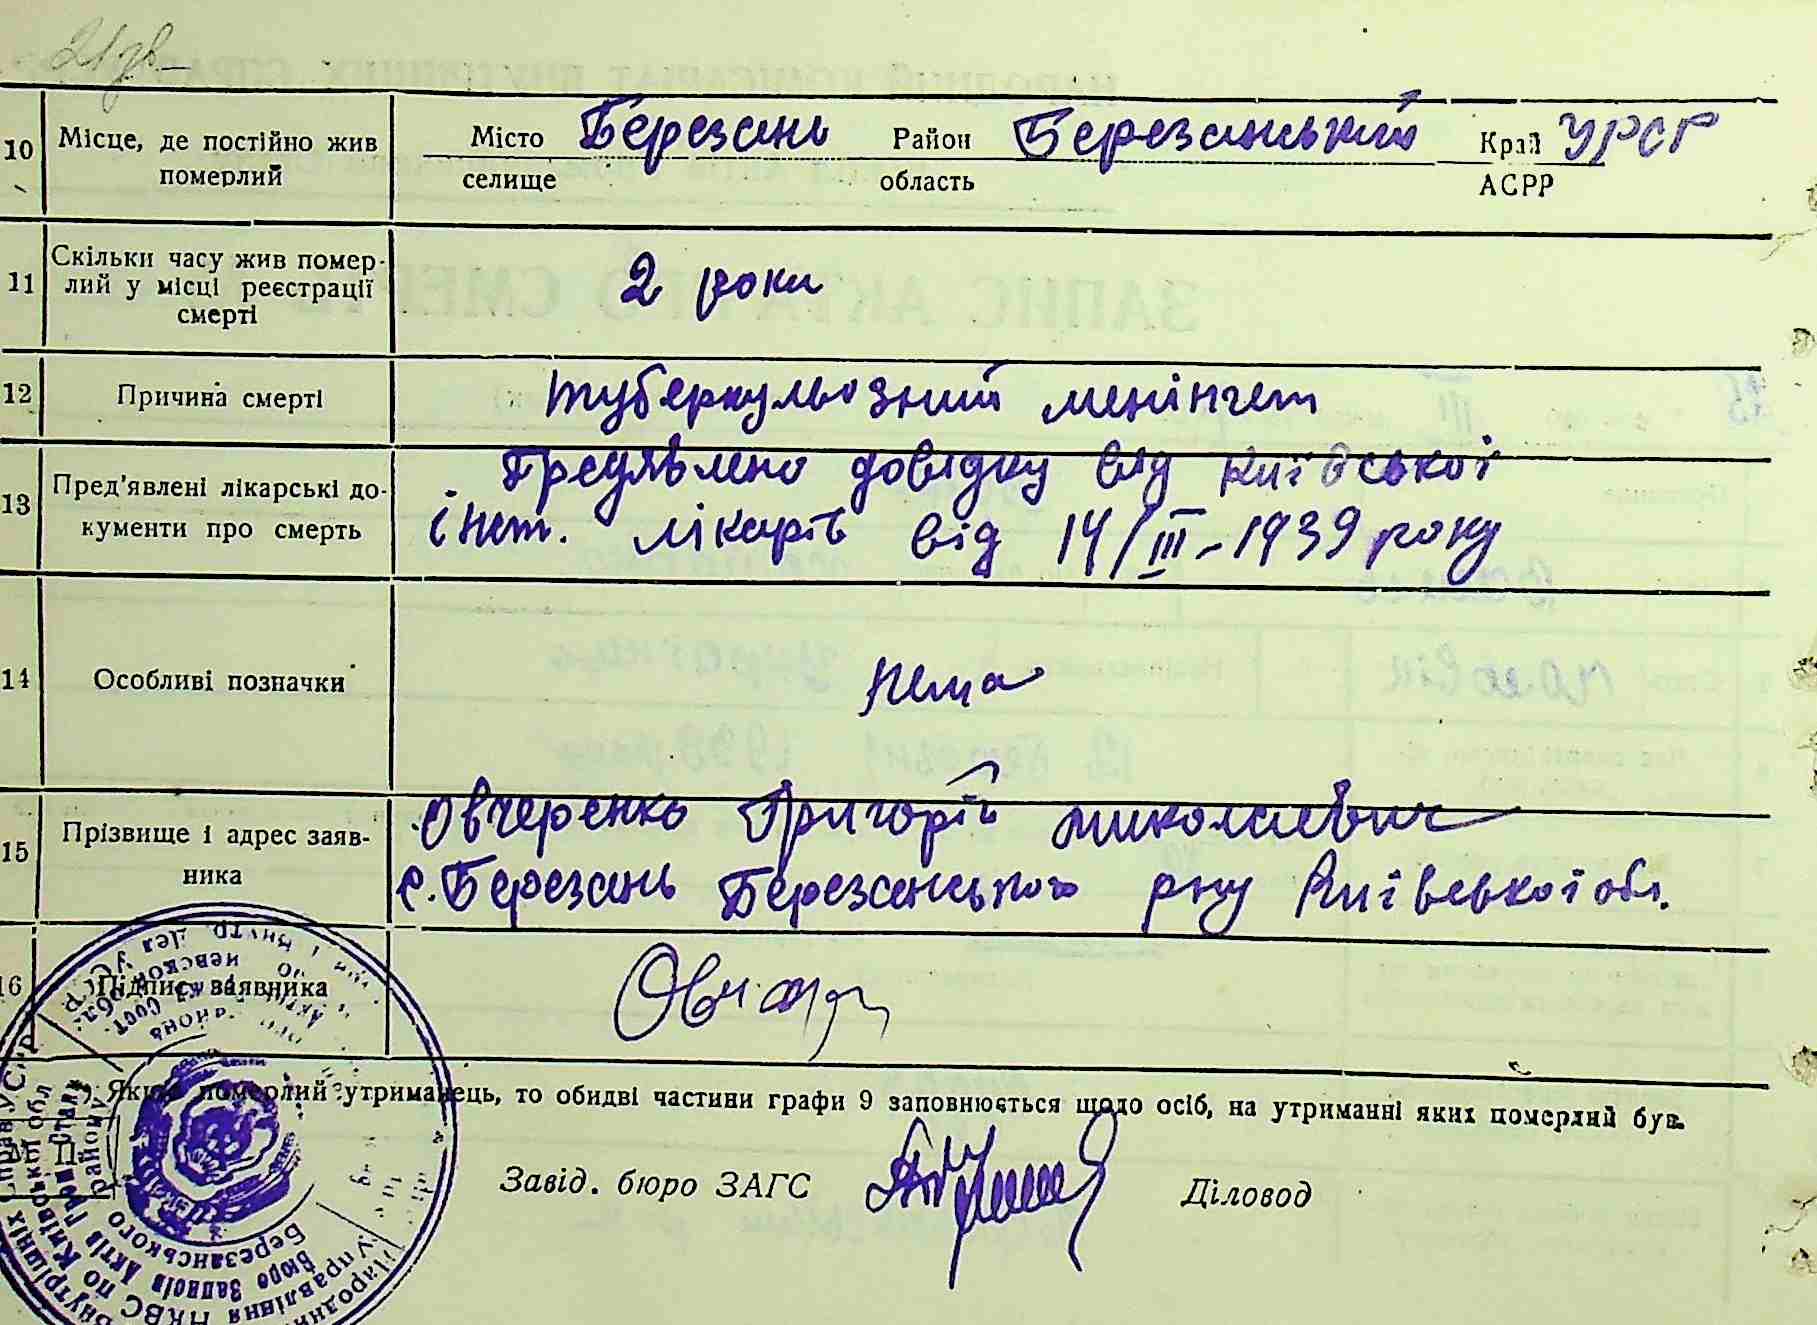 21 зв
10 Місце, де постійно жив померлий Місто селище Березань Район область Березанський Край АСРР УРСР
11 Скільки часу жив помер-
лий у місці реєстрації
смерті 2 роки
12 Причина смерті туберкульозний менінгет
13 Пред'явлені лікарські до-
кументи про смерть Преулвлено довідку від Київської
інст. лікарів від 14/III-1939 року
14 Особливі позначки нема
15 Прізвище і адрес заяв-
ника Овчеренко Григорій Миколаєвич
с. Березань Березанського рну Київської обл.
16 Підпис заявника
*) Якщо померлий утриманець, то обидві частини графи 9 заповнюється щодо осіб, на утриманні яких померлий був.
М. П.
Завід. бюро ЗАГС Діловод